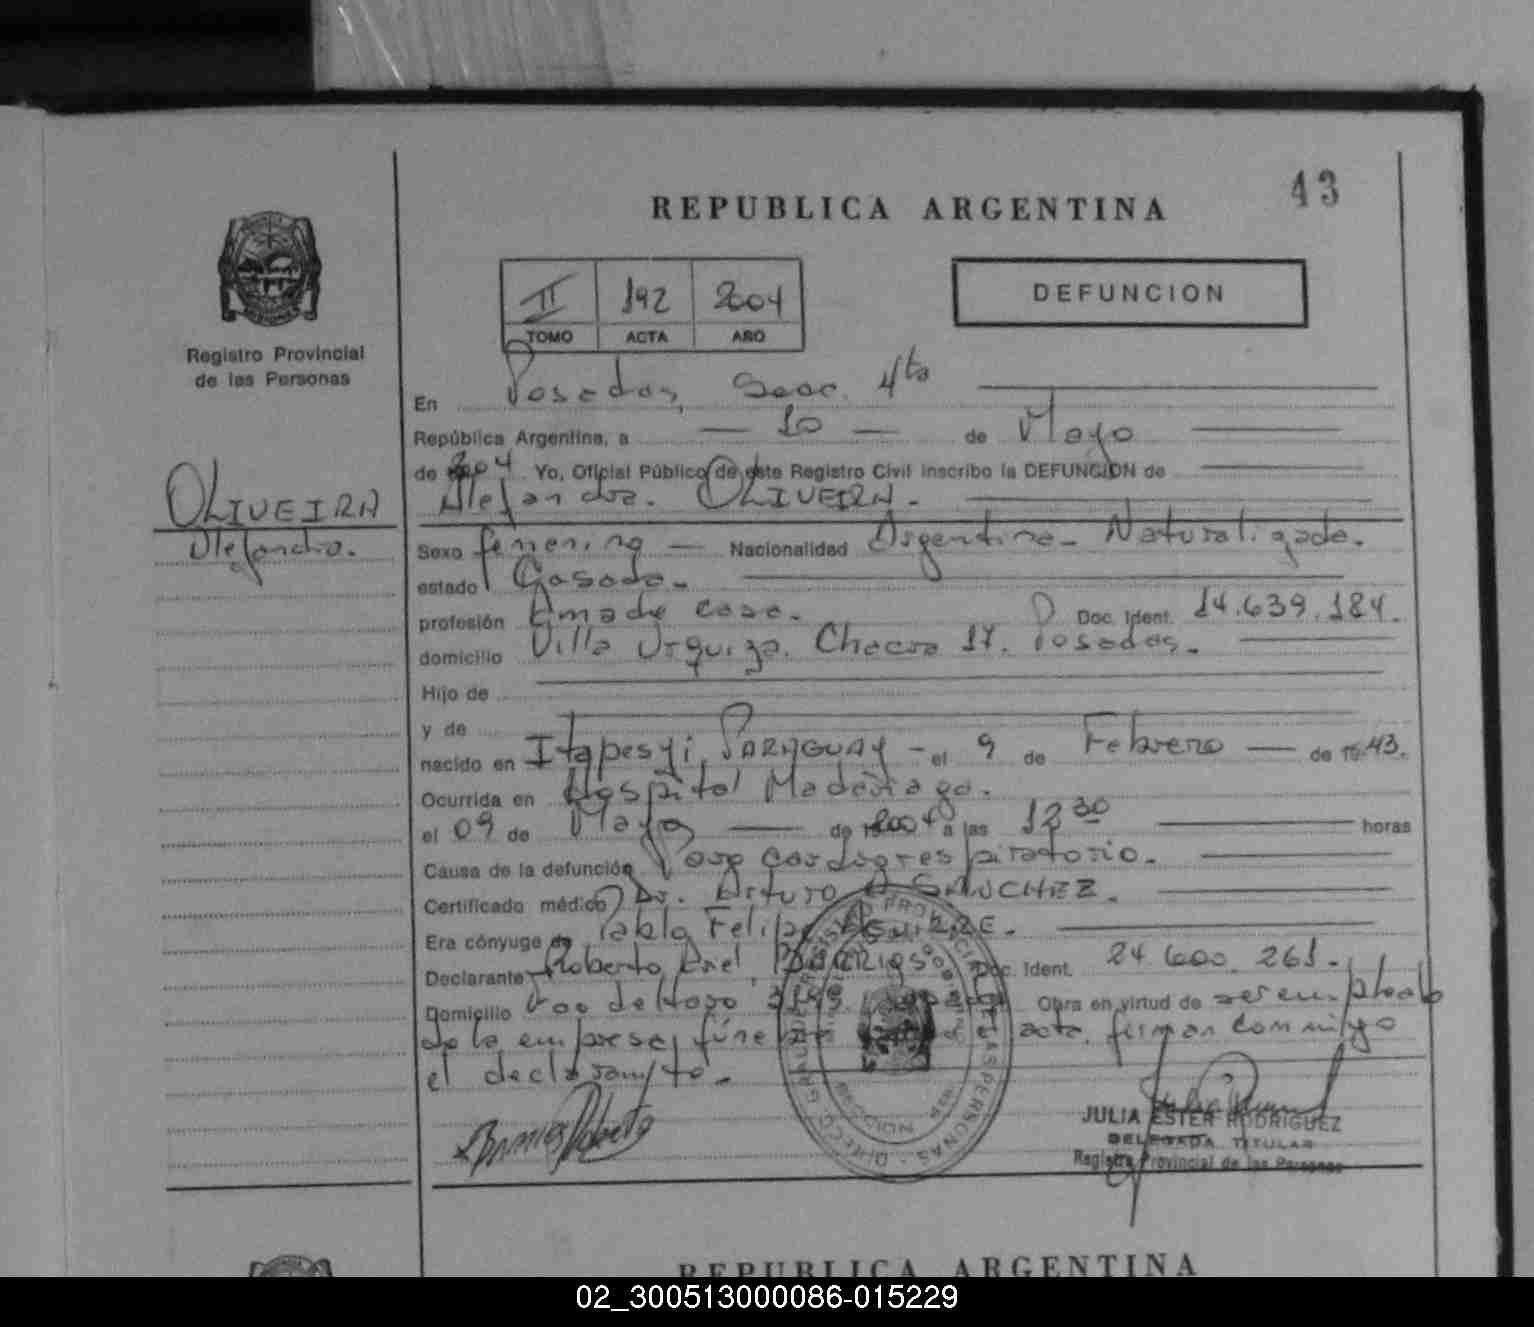 43
REPUBLICA ARGENTINA
II 192 2004
TOMO ACTA AÑO
DEFUNCION
Registro Provincial
de las Personas
En Posadas, Secc. 4ta
República Argentina, a 10 de Mayo
de 2004 Yo, Oficial Público de este Registro Civil inscribo la DEFUNCION de
Alejandra. OLIVEIRA.
OLIVEIRA
Alejandra.
Sexo femenino Nacionalidad Argentina - Naturalizada.
estado Casada.
profesión Ama de casa. Doc. Ident. 14.639.184.
domicilio Villa Urquiza. Chacra 17. Posadas.
Hijo de
y de
nacido en Itapesyi, PARAGUAY - el 9 de Febrero de 19 43.
Ocurrida en Hospital Madariaga.
el 09 de Mayo de 2004 a las 12 30 horas
Causa de la defunción Paro cardiorespiratorio.
Certificado médico Dr. Arturo SANCHEZ.
Era cónyuge de Pablo Felipe
Declarante Roberto BARRIOS Doc. Ident. 24.600.261.
Domicilio Obra en virtud de ser empleado
de la empresa acta firman conmigo
el declarante.
Barrios Roberto
JULIA ESTER RODRIGUEZ
DELEGADA TITULAR
Registro Provincial de las Personas
REPUBLICA ARGENTINA
02_300513000086-015229